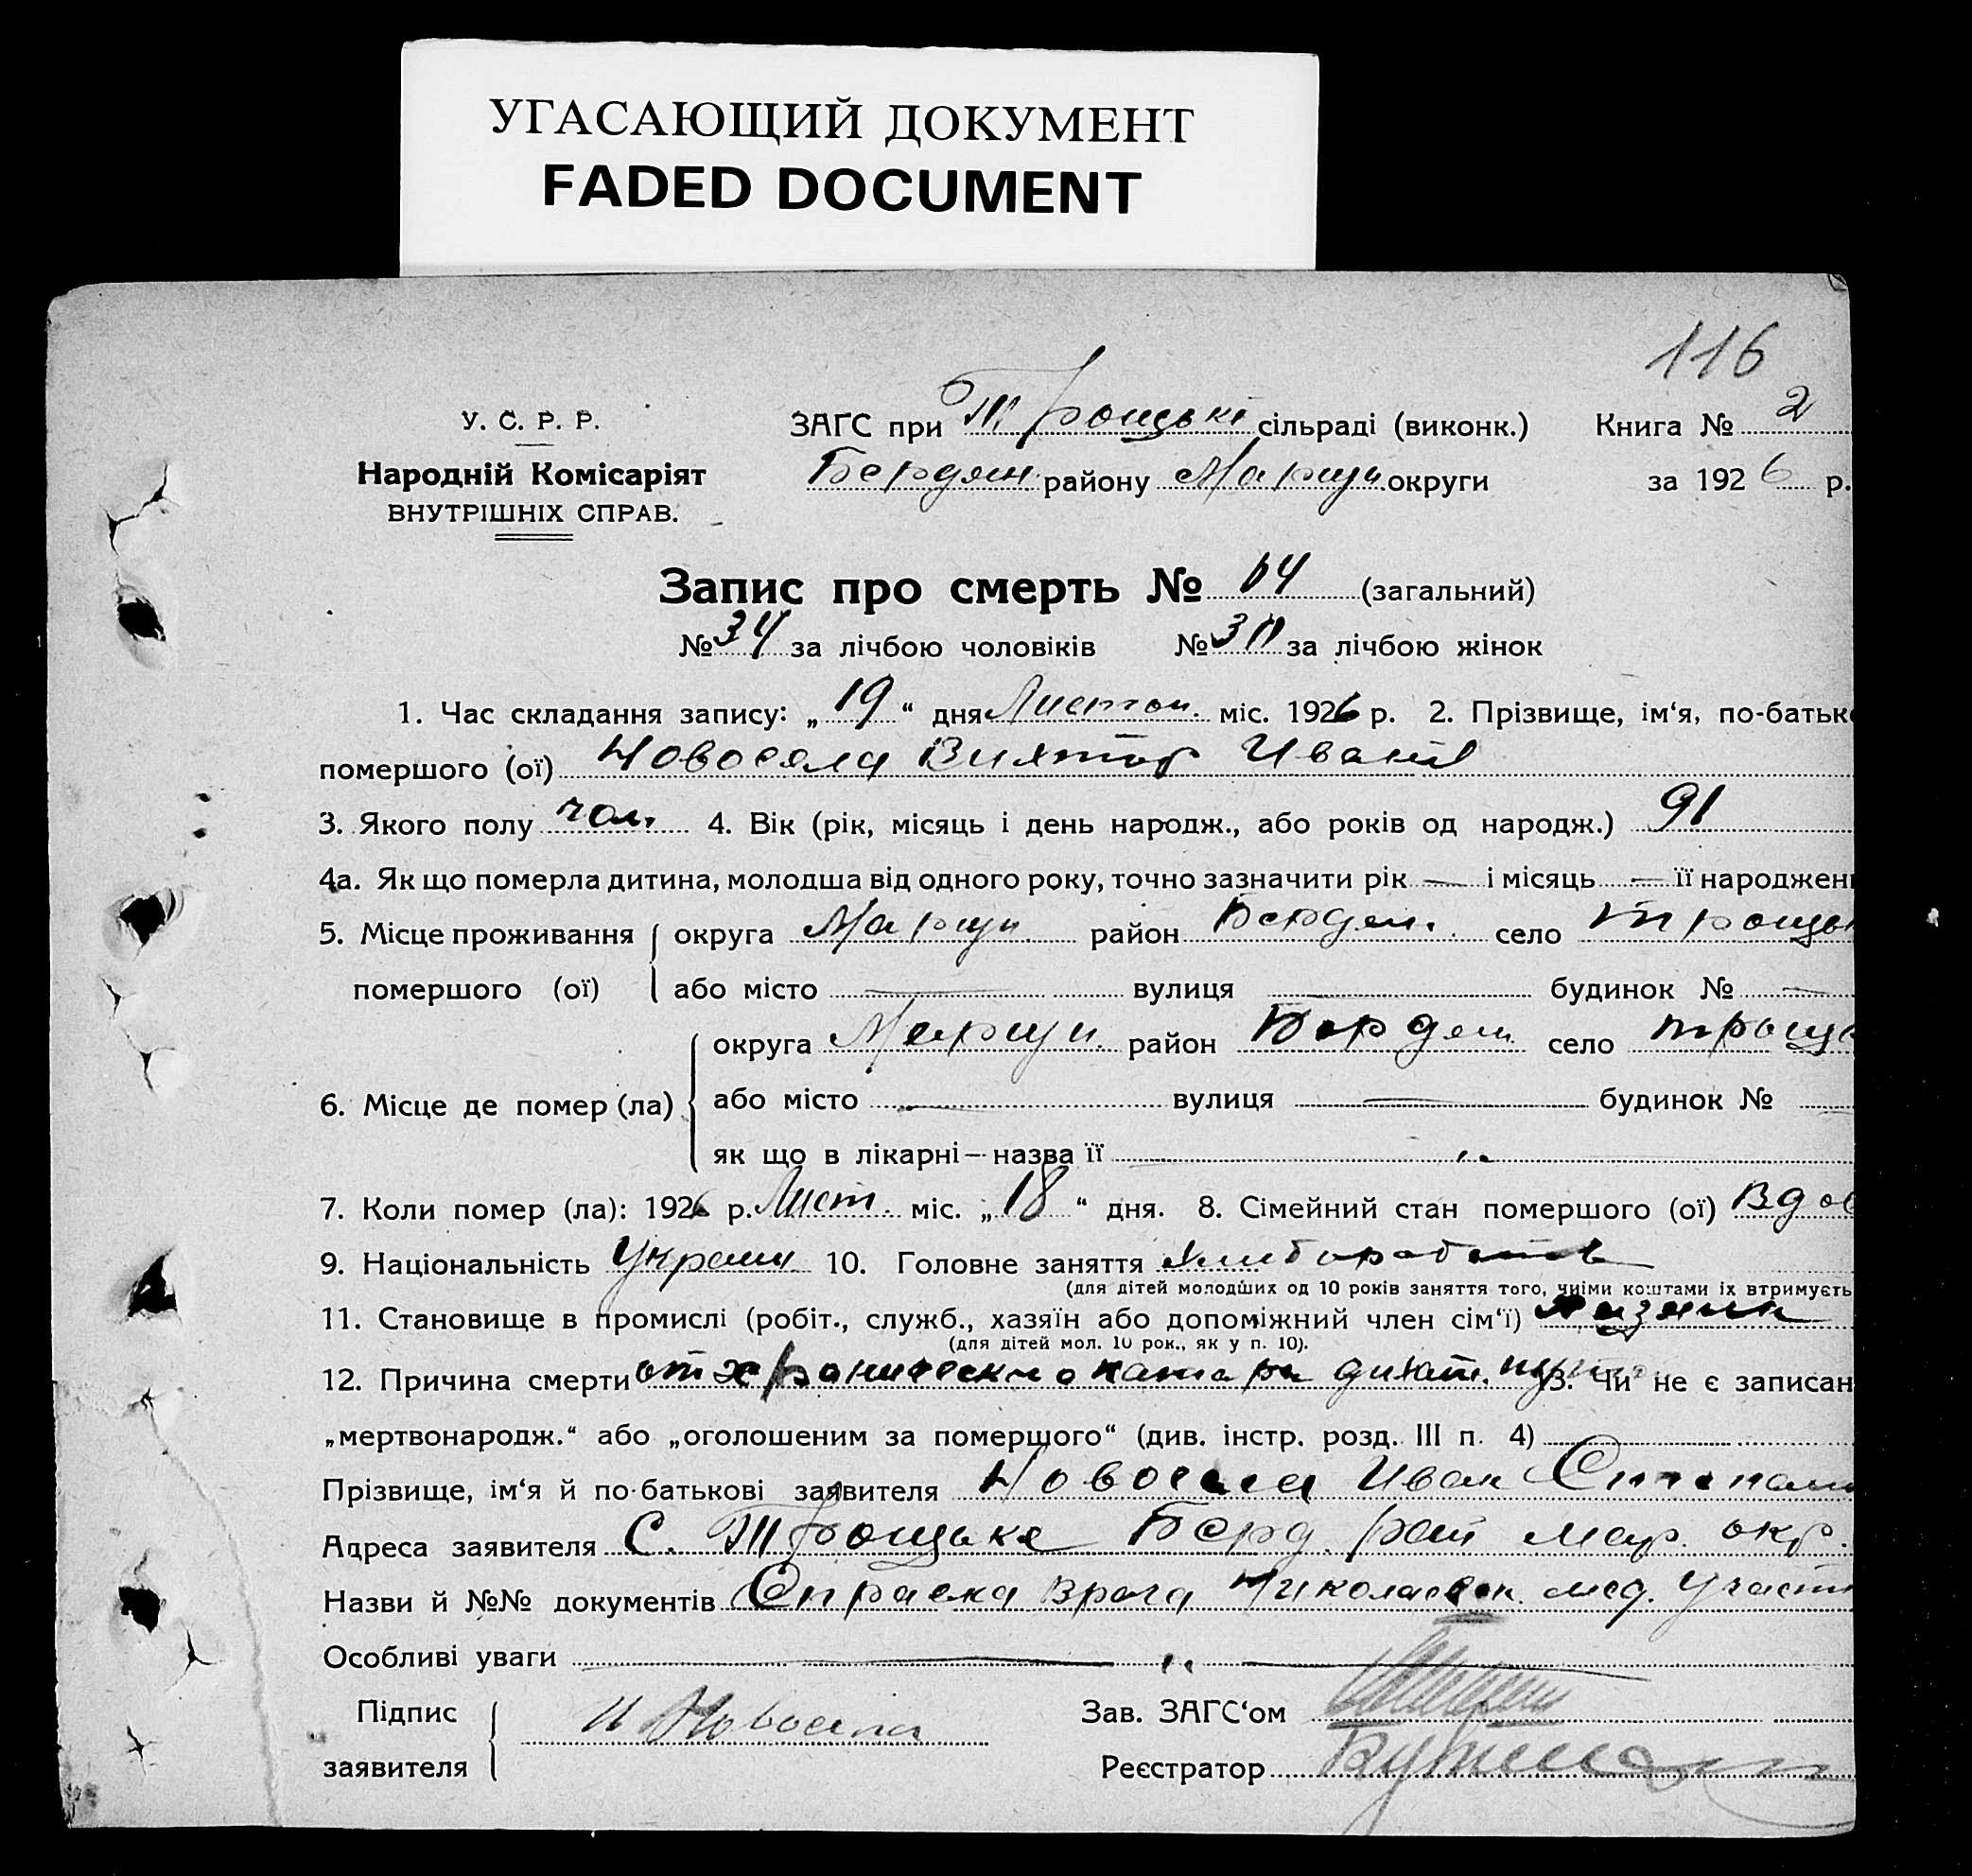 УГАСАЮЩИЙ ДОКУМЕНТ
FADED DOCUMENT
116
У. С. Р. Р.
Народній Комісаріят
ВНУТРІШНІХ СПРАВ.
ЗАГС при Троцькі сільраді (виконк.) Книга № 2
Бердян району Мариуп округи за 1926 р.
Запис про смерть № 64 (загальний)
№ 34 за лічбою чоловіків № за лічбою жінок
1. Час складання запису: „19“ дня Листоп. міс. 1926 р. 2. Прізвище, ім‘я, по-батьк
помершого (ої) Новосела Виктор Иванов
3. Якого полу чол. 4. Вік (рік, місяць і день народж., або років од народж.) 91
4а. Як що померла дитина, молодша від одного року, точно зазначити рік — і місяць — її народжен
5. Місце проживання округа Мариуп район Бердян. село Троць
помершого (ої) або місто — вулиця — будинок № —
округа Мариуп. район Бердян село Троць
6. Місце де помер (ла) або місто — вулиця — будинок № —
як що в лікарні — назва її „
7. Коли помер (ла): 1926 р. Лист. міс. „18“ дня. 8. Сімейний стан помершого (ої) Вдов
9. Національність Украин 10. Головне заняття
(для дітей молодших од 10 років заняття того, чиїми коштами їх втримуєть
11. Становище в промислі (робіт., служб., хазяїн або допоміжний член сім‘ї) Хазяин
(для дітей мол. 10 рок., як у п. 10).
12. Причина смерти от хронического катара дихат. пут 13. Чи не є записан
„мертвонародж.“ або „оголошеним за помершого“ (див. інстр. розд. III п. 4)
Прізвище, ім‘я й по-батькові заявителя Новосела Иван Степано
Адреса заявителя С. Троцьке Берд. рай Мар. окр.
Назви й №№ документів Справка врача Николаевск. мед. участ
Особливі уваги — „ —
Підпис
заявителя И Новосела
Зав. ЗАГС‘ом
Реєстратор